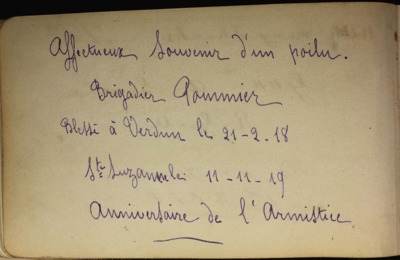 Affectueux Souvenir d'un poilu.
Brigadier Pommier
Blessé à Verdun le 21-2-18
Ste Suzanne le 11-11-19
Anniversaire de l'Armistice